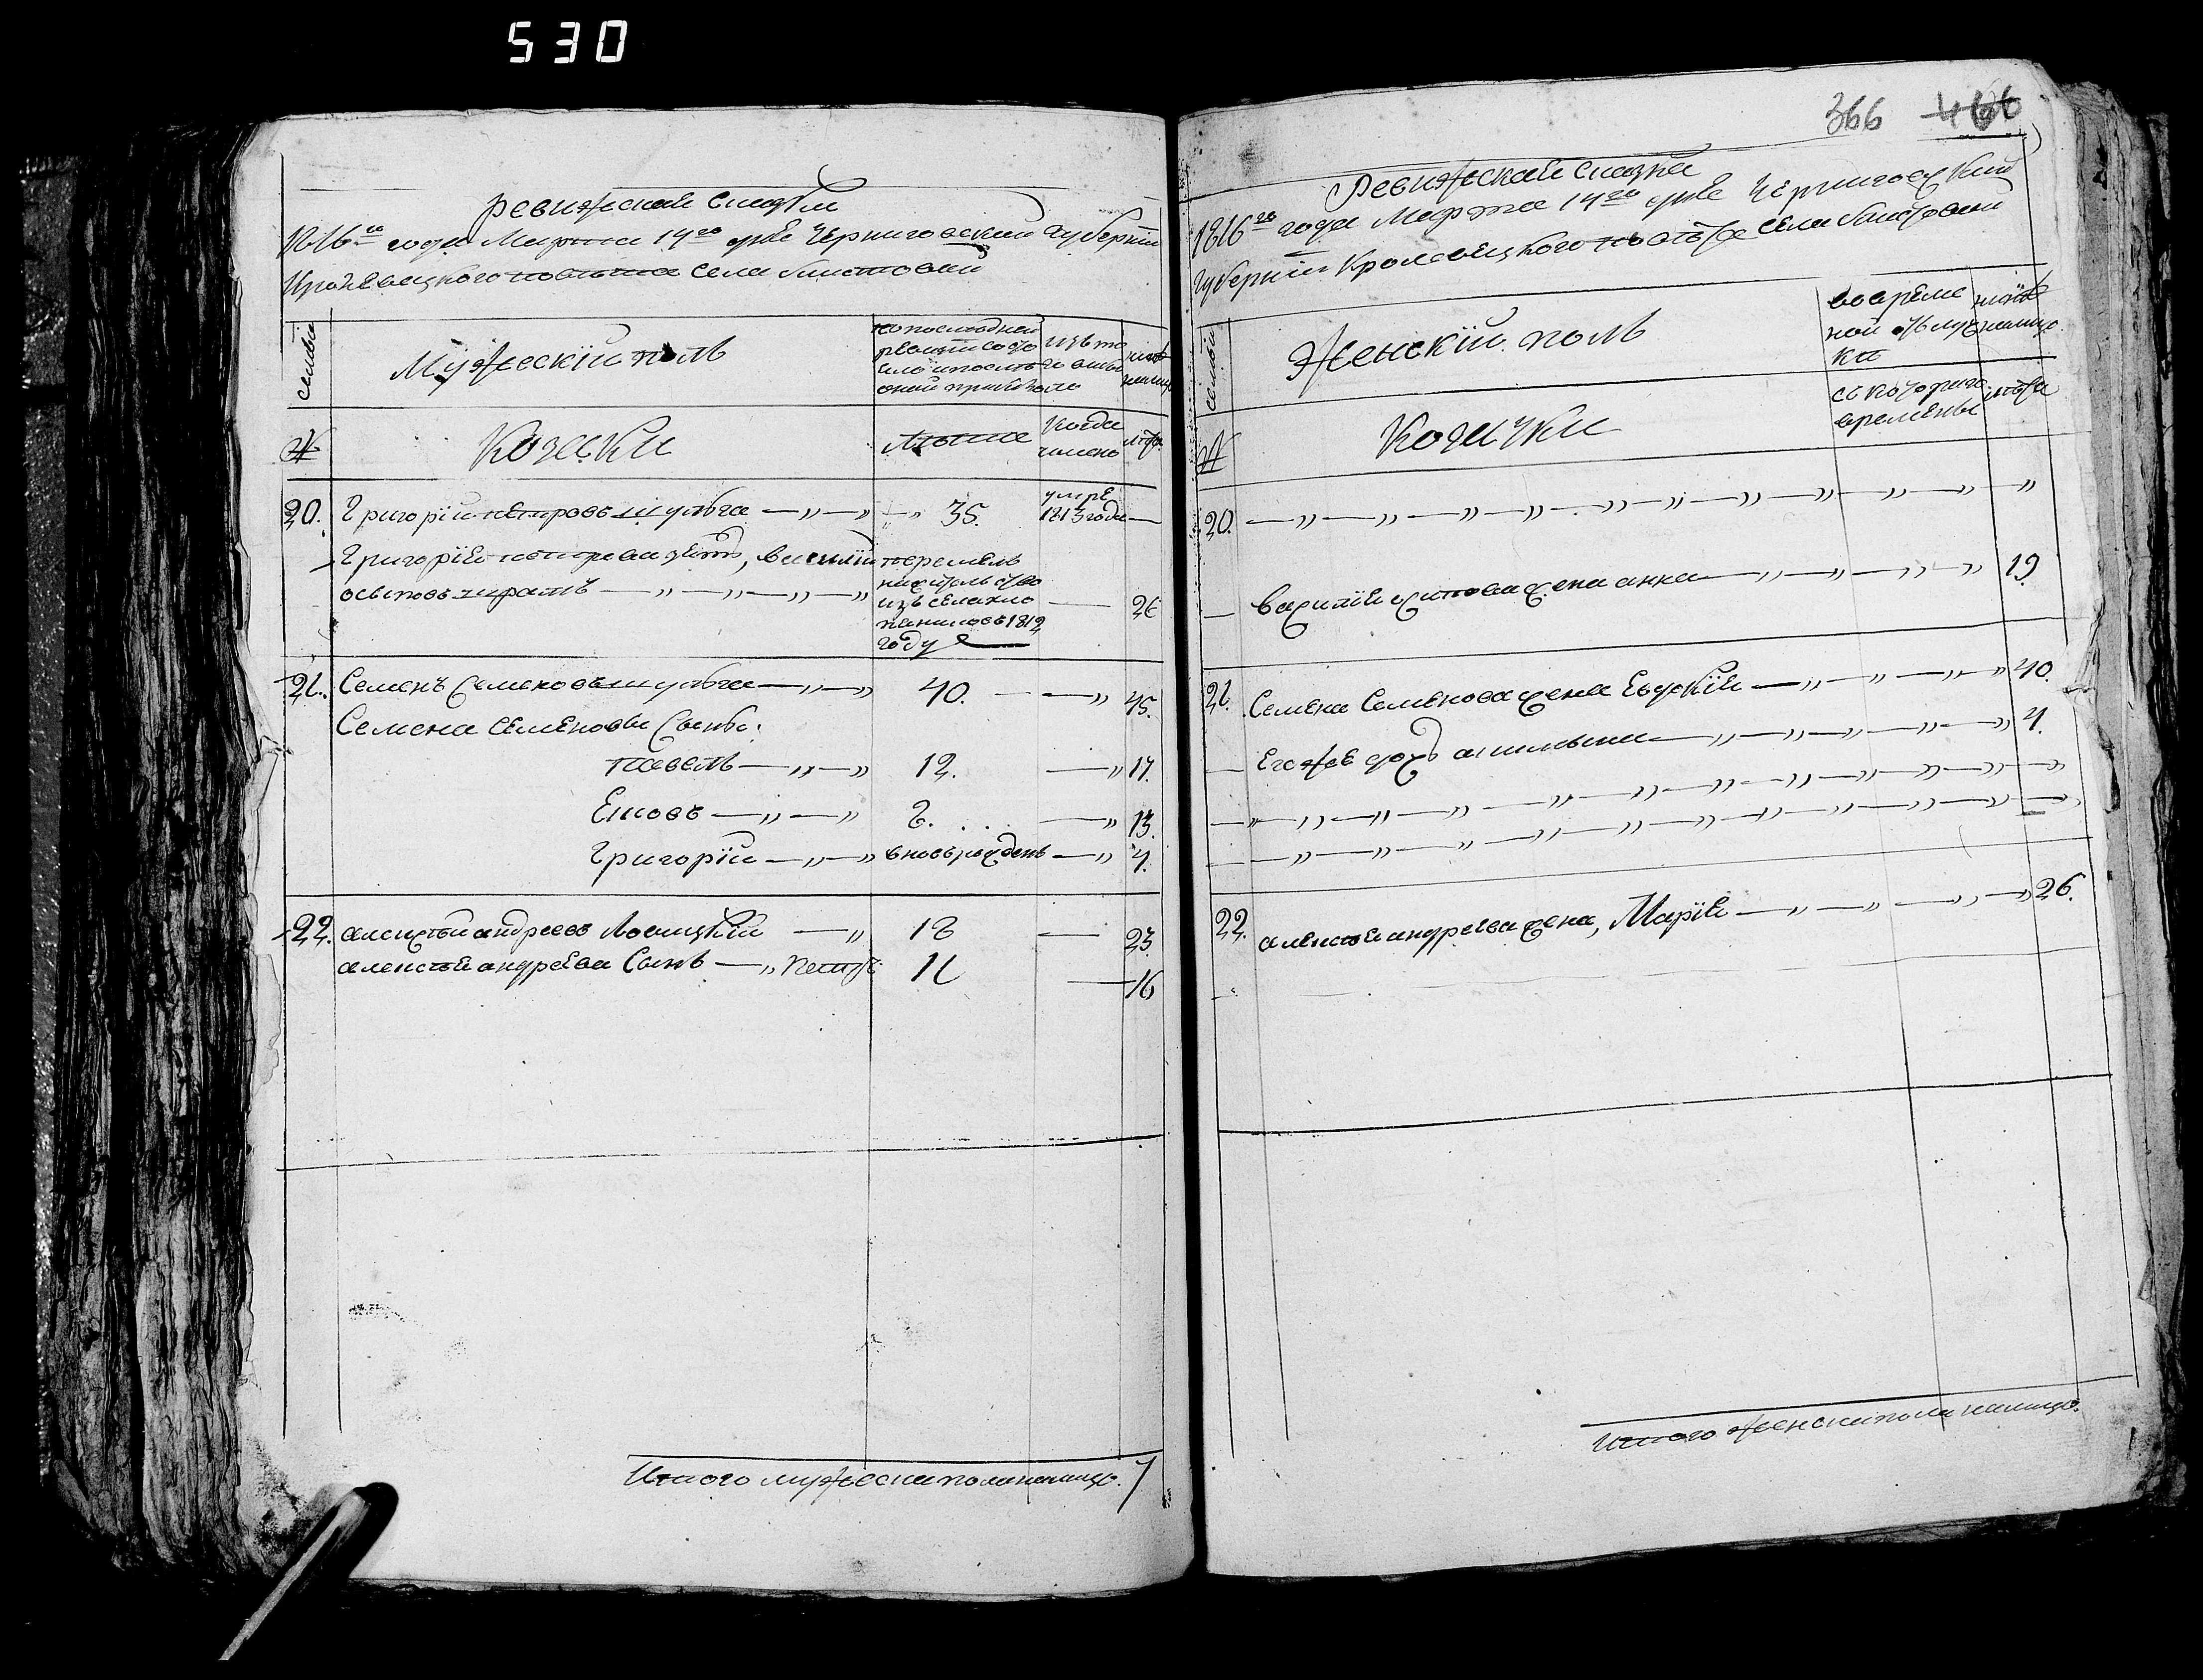 530
Ревижская сказка
1816го года Марта 14го дня Черниговский губернии
Кролевецкого повета села
семьи
Мужеский полъ
по последней
ревизии состо
яло и после
оной прибыло
изъ то
го выбы
ло
ныне
налицо
№
Козаки
Лета
когда
именно
лета
20. Григорий Петровъ Шульга —„—„ —„ 35. умре 1813 года —
Григория Петрова зять, василий
осиповъ —„—„—„—„
перешелъ
на жительство
изъ села
1812
году
— 26
21. Семенъ Семеновъ Шульга —„—„ 40. — —„ 45.
Семена Семенова Сыны:
Павелъ —„—„ 12. —„ 17.
—„—„ 8. —„ 13.
Григорий —„—„ вновь рожденъ —„ 4.
22. алексей андреевъ Ловицкий —„ 18 — 23.
алексея андреева Сынъ —„ Петръ 11 — 16
Итого мужеска пола налицо. 7
366 466
Ревижская сказка
1816го года Марта 14го дня Черниговский
губернии Кролевецкого повета села
семьи
Женский полъ
во време
нной отлуч
ке
ныне
налицо.
№
Козачки
съ которого
времени
лета
20. —„—„—„—„—„—„—„—„—„
— василия осипова жена анна —„—„—„—„ 19.
21. Семена Семенова жена Евдокия —„—„—„—„ 40.
— Его же дочь —„—„—„—„—„ 4.
—„—„—„—„—„—„—„—„—„—„
—„—„—„—„—„—„—„—„—„—„
22. алексея андреева жена, Мария —„—„—„—„ 26.
Итого женска пола налицо.